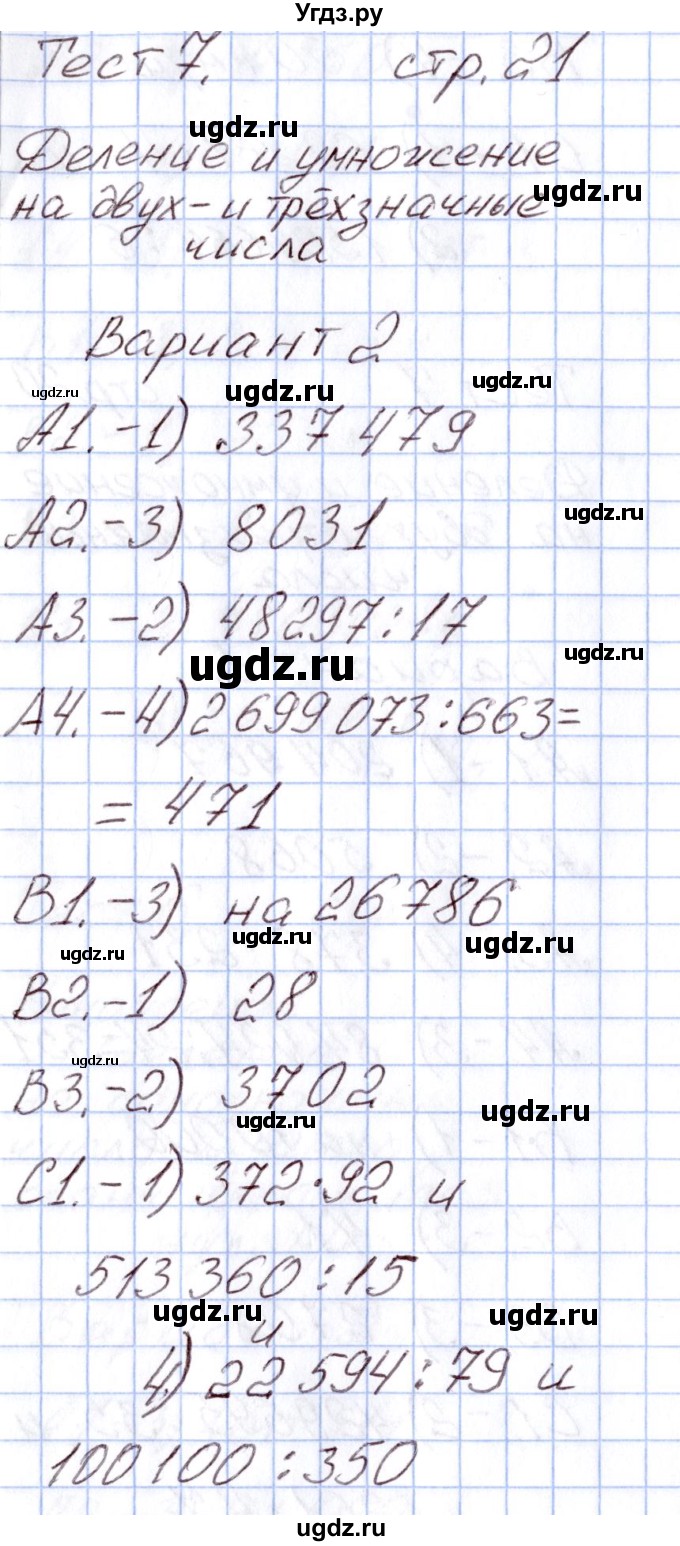 Угдз.ру
Тест 7. стр. 21
ugdz.ru
Деление и умножение
ugdz.ru
на двух- и трёхзначные
числа
Вариант 2
ugdz.ru ugdz.ru ugdz.ru
А1.-1) 337 479
А2.-3) 8031 ugdz.ru
А3.-2) 48297:17
ugdz.ru ugdz.ru
А4.-4) 2 699 073:663=
= 471
В1.-3) на 26 786
ugdz.ru ugdz.ru ugdz.ru
В2.-1) 28
ugdz.ru
В3.-2) 3702
ugdz.ru ugdz.ru
С1.-1) 372·92 и
513 360:15
ugdz.ru и ugdz.ru
4) 22 594:79 и
100 100:350
ugdz.ru